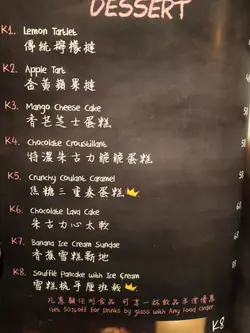 DESSERT
K1. Lemon Tartlet
傳統檸檬撻
K2. Apple Tart
金黃蘋果撻
K3. Mango Cheese Cake
香芒芝士蛋糕
K4. Chocolate Croustillant
特濃朱古力脆脆蛋糕
K5. Crunchy Coulant Caramel
焦糖三重奏蛋糕
K6. Chocolate Lava Cake
朱古力心太軟
K7. Banana Ice Cream Sundae
香蕉雪糕新地
K8. Soufflé Pancake with Ice Cream
雪糕梳乎厘班戟
凡惠顧任何食品 可享一杯飲品半價優惠
Get 50% off for Drinks by glass with Any Food Order
K8